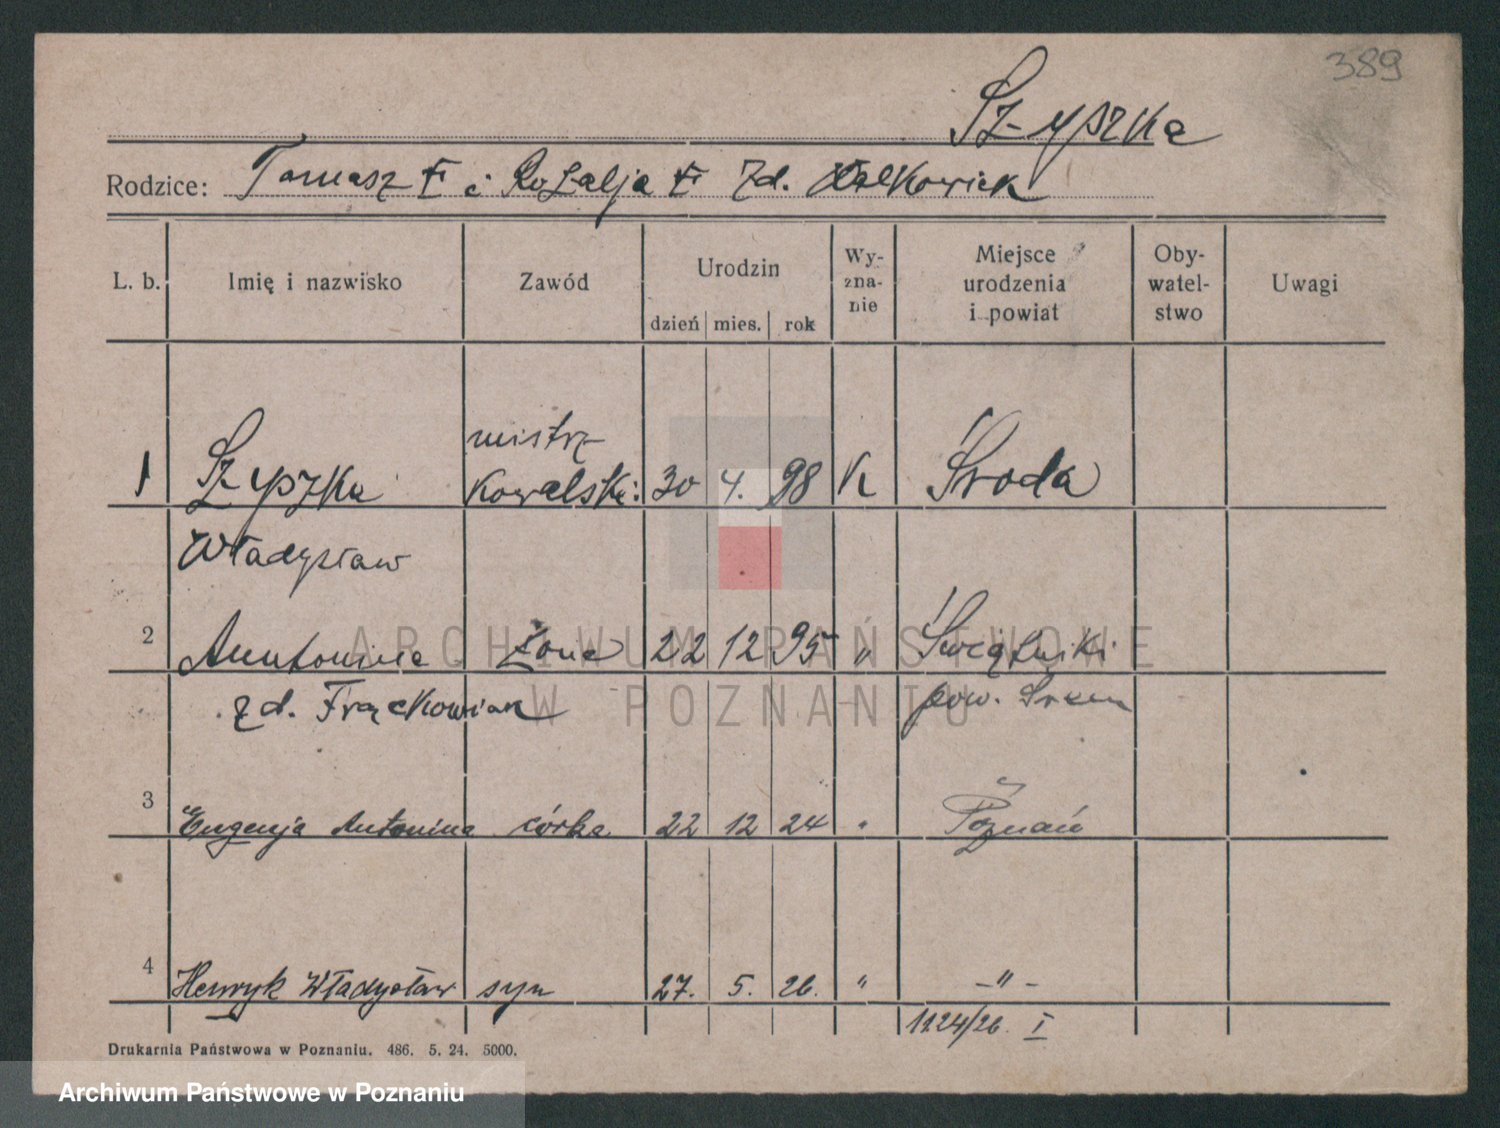 389
Szyszka
Rodzice: Tomasz i Rozalja zd.
L. b. Imię i nazwisko Zawód Urodzin dzień mies. rok Wy-zna-nie Miejsce urodzenia i powiat Oby-watel-stwo Uwagi
mistrz
1 Szyszka kowalski: 30 4. 98 K Środa
Władysław
2 Antonina żona 22 12 95 " Świątniki
zd. Frąckowiak pow. Śrem
3 Eugenja Antonina córka 22 12 24 " Poznań
4 Henryk Władysław syn 27. 5. 26. " -"-
1124/26. I
Drukarnia Państwowa w Poznaniu. 486. 5. 24. 5000.
ARCHIWUM PAŃSTWOWE
W POZNANIU
Archiwum Państwowe w Poznaniu